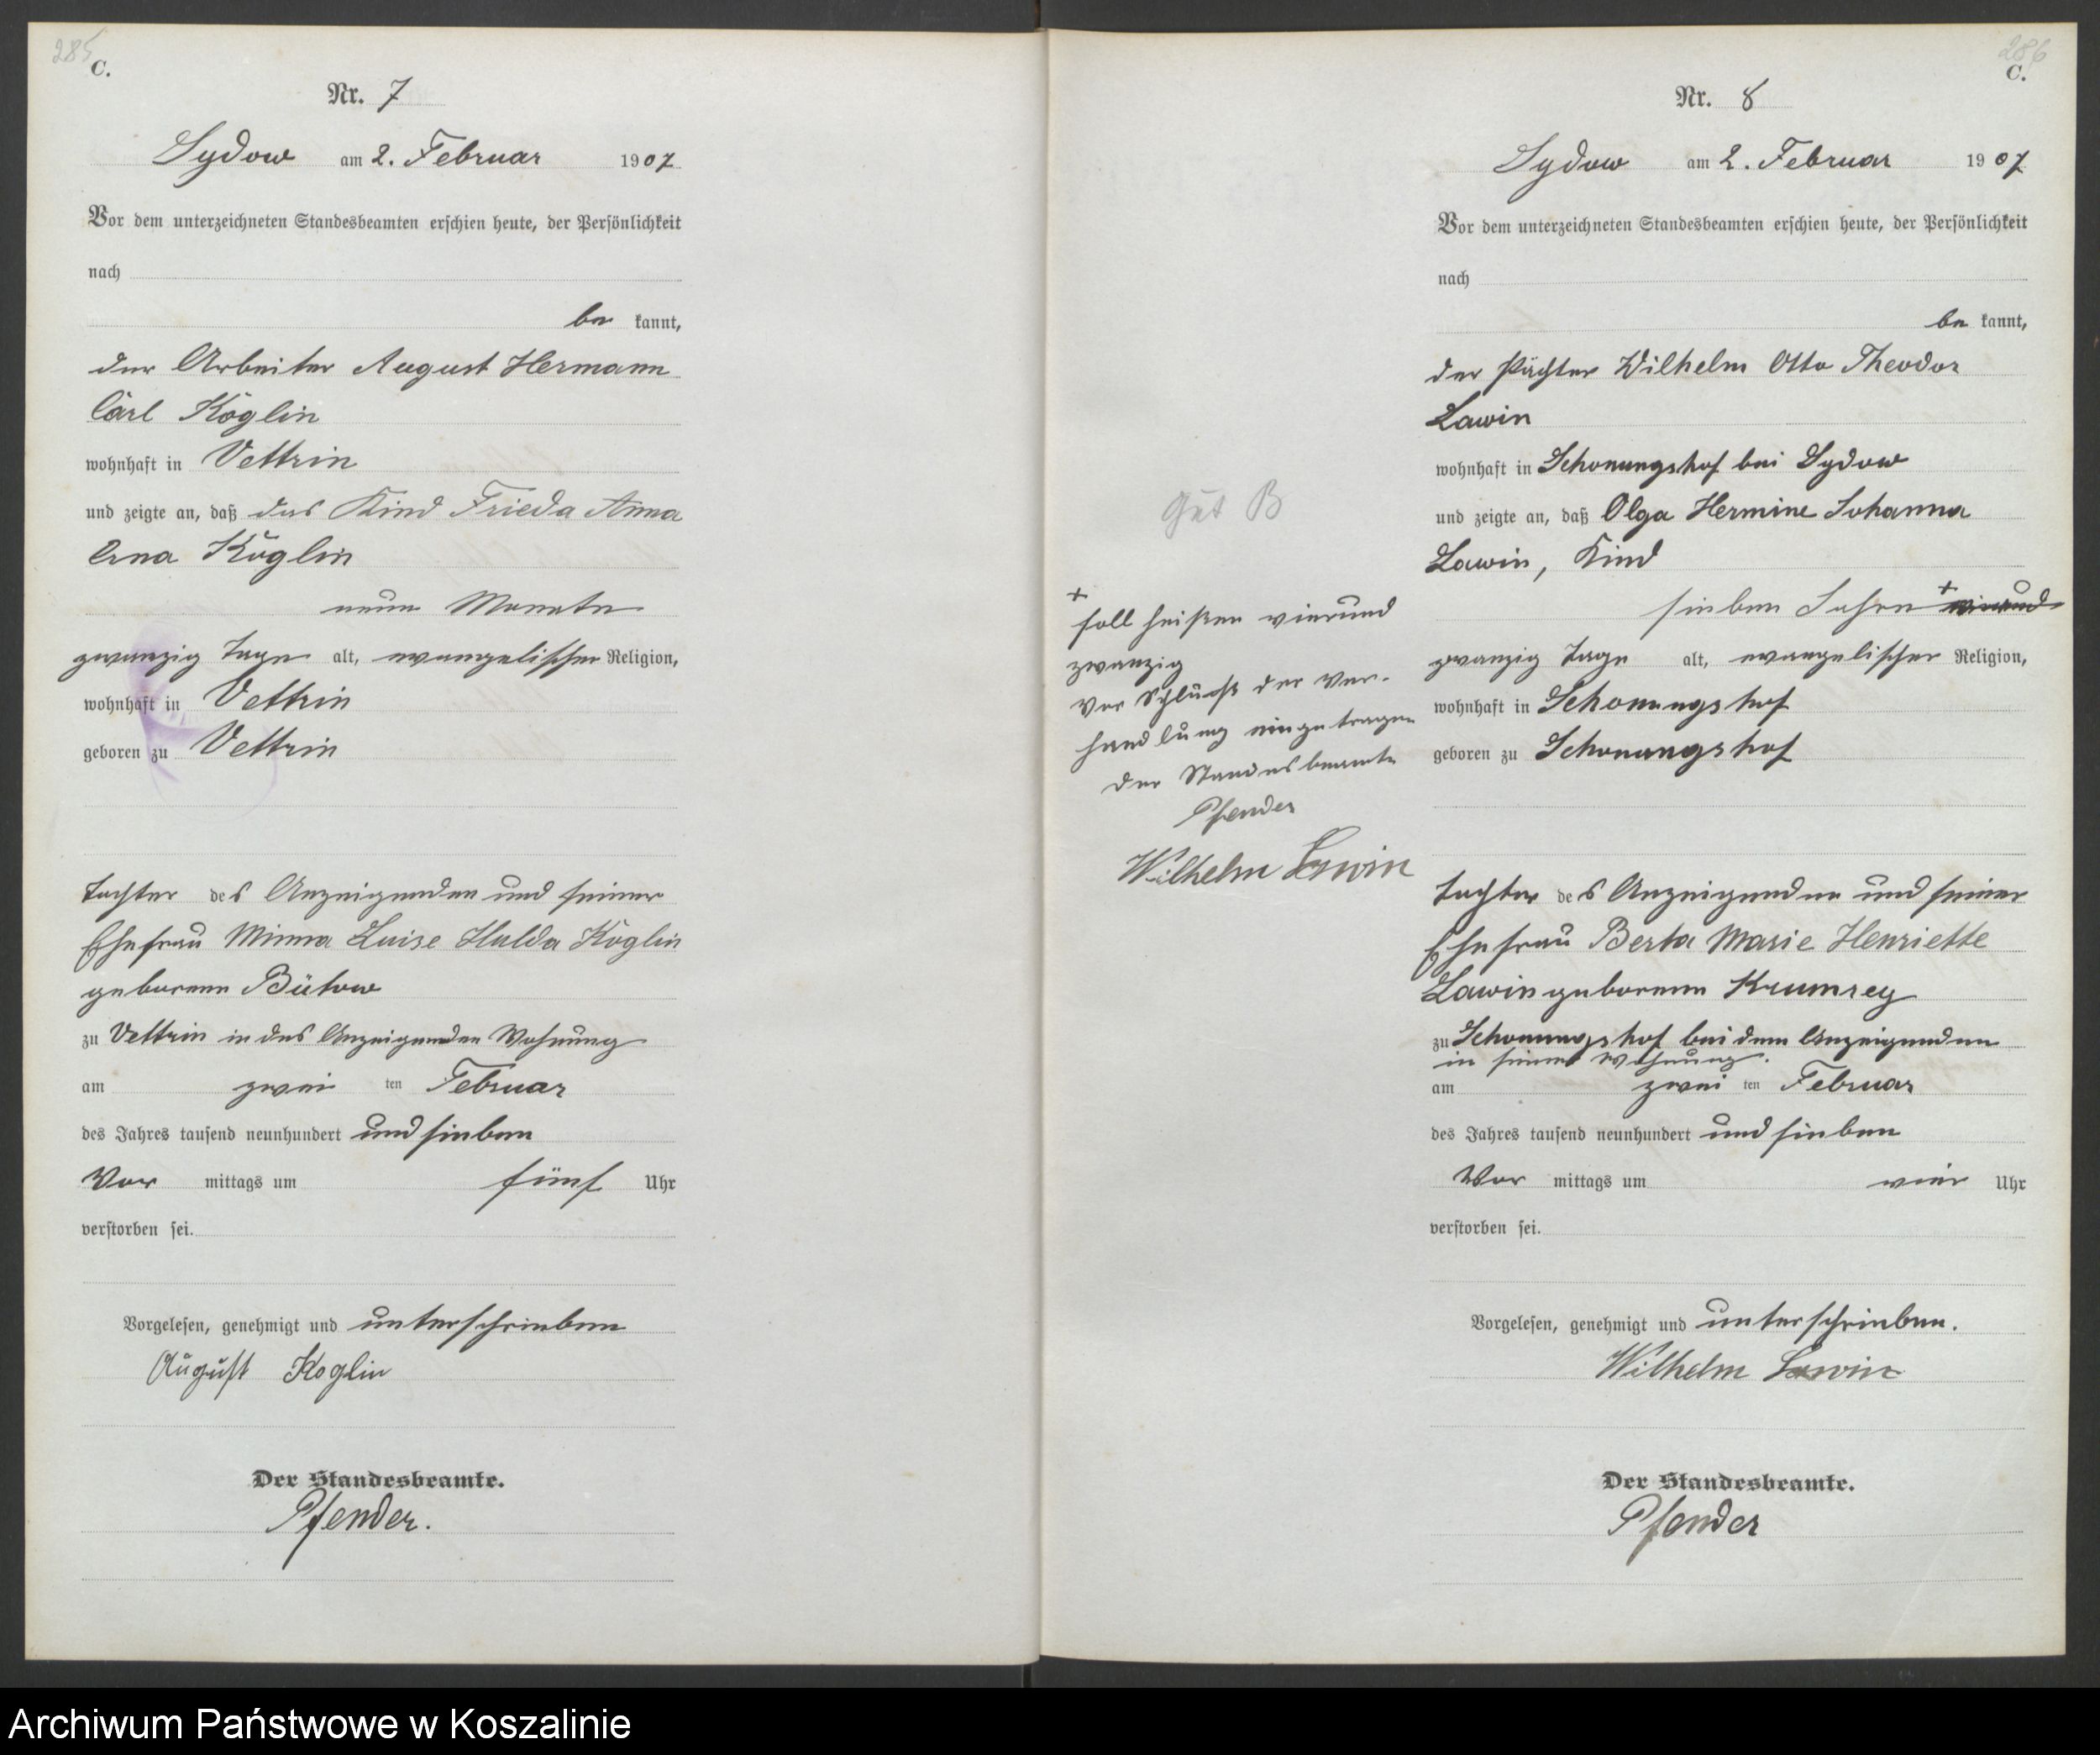 285
C.
Nr. 7
Sydow am 2. Februar 1907
Vor dem unterzeichneten Standesbeamten erschien heute, der Persönlichkeit
nach
be kannt,
der Arbeiter August Hermann
Carl Koglin
wohnhaft in Vettrin
und zeigte an, daß das Kind Frieda Anna
Erna Koglin
neun Monate
zwanzig Tage alt, evangelischer Religion,
wohnhaft in Vettrin
geboren zu Vettrin
Tochter des Anzeigenden und seiner
Ehefrau Minna Luise Hulda Koglin
geborenen Bütow
zu Vettrin in des Anzeigenden Wohnung
am zwei ten Februar
des Jahres tausend neunhundert und sieben
Vor mittags um fünf Uhr
verstorben sei.
Vorgelesen, genehmigt und unterschrieben
August Koglin
Der Standesbeamte.
Pfender.
286
C.
Nr. 8
Sydow am 2. Februar 1907
Vor dem unterzeichneten Standesbeamten erschien heute, der Persönlichkeit
nach
be kannt,
der Pächter Wilhelm Otto Theodor
Lawin
wohnhaft in Schonungshof bei Sydow
und zeigte an, daß Olga Hermine Johanna
Lawin, Kind
sieben Jahre + vierund
zwanzig Tage alt, evangelischer Religion,
wohnhaft in Schonungshof
geboren zu Schonungshof
Tochter des Anzeigenden und seiner
Ehefrau Berta Marie Henriette
Lawin geborenen Krumrey
zu Schonungshof bei dem Anzeigenden
in seiner Wohnung.
am zwei ten Februar
des Jahres tausend neunhundert und sieben
Vor mittags um vier Uhr
verstorben sei.
Vorgelesen, genehmigt und unterschrieben.
Wilhelm Lawin
Der Standesbeamte.
Pfender
Gut B
+
soll heißen vierund
zwanzig
vor Schluß der Ver-
handlung eingetragen
Der Standesbeamte
Pfender
Wilhelm Lawin
Archiwum Państwowe w Koszalinie